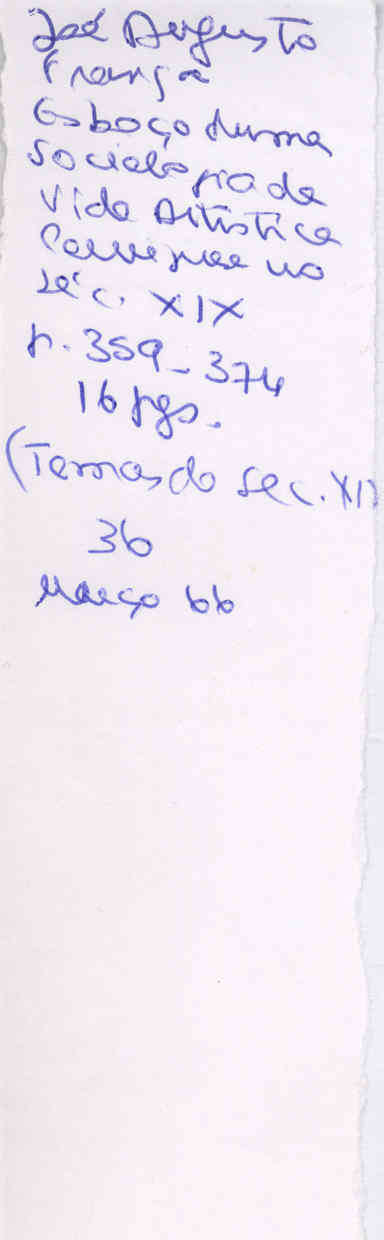 José Augusto
França
Esboço duma
Sociologia da
Vida Artística
Portuguesa no
séc. XIX
p. 359-374
16 pgs.
(Temas do séc. XIX)
36
Março 66